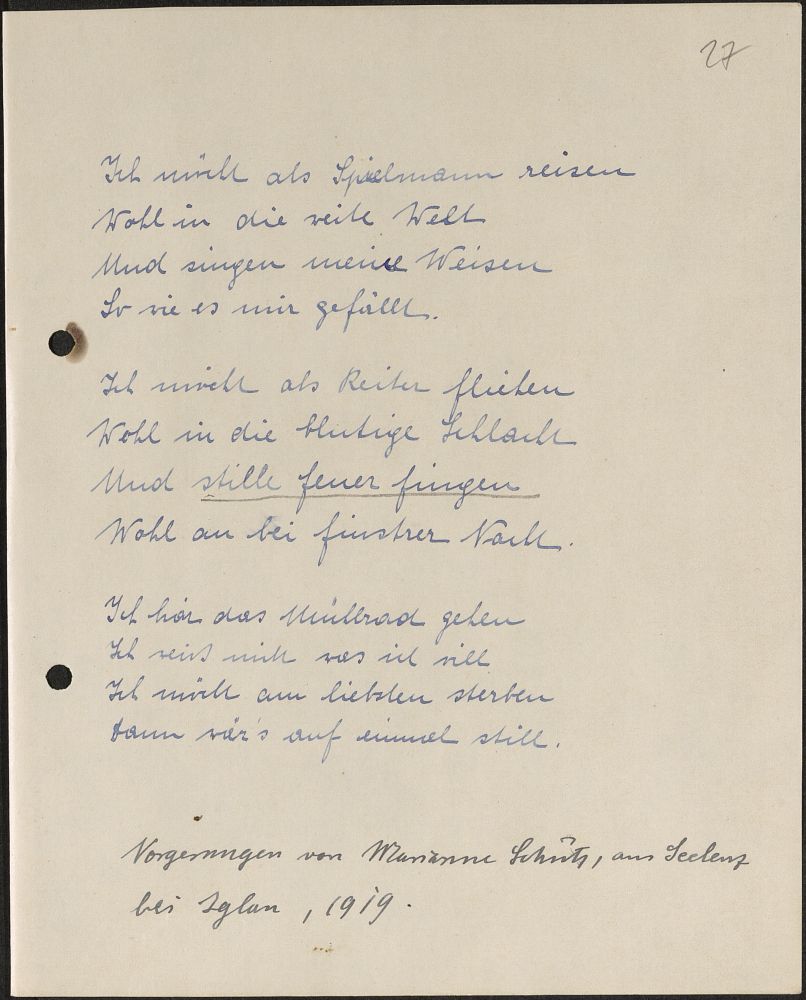 27
Ich möcht als Spielmann reisen
Wohl in die weite Welt
Und singen meine Weisen
So wie es mir gefällt.
Ich möcht als Reiter fliehen
Wohl in die blutige Schlacht
Und stille feuer fingen
Wohl an bei finstrer Nacht.
Ich hör das Müllrad gehen
Ich weiß nicht was ich will
Ich möcht am liebsten sterben
Dann wär's auf einmal still.
Vorgesungen von Marianne Schütz, aus Seelenz
bei Iglau, 1919.